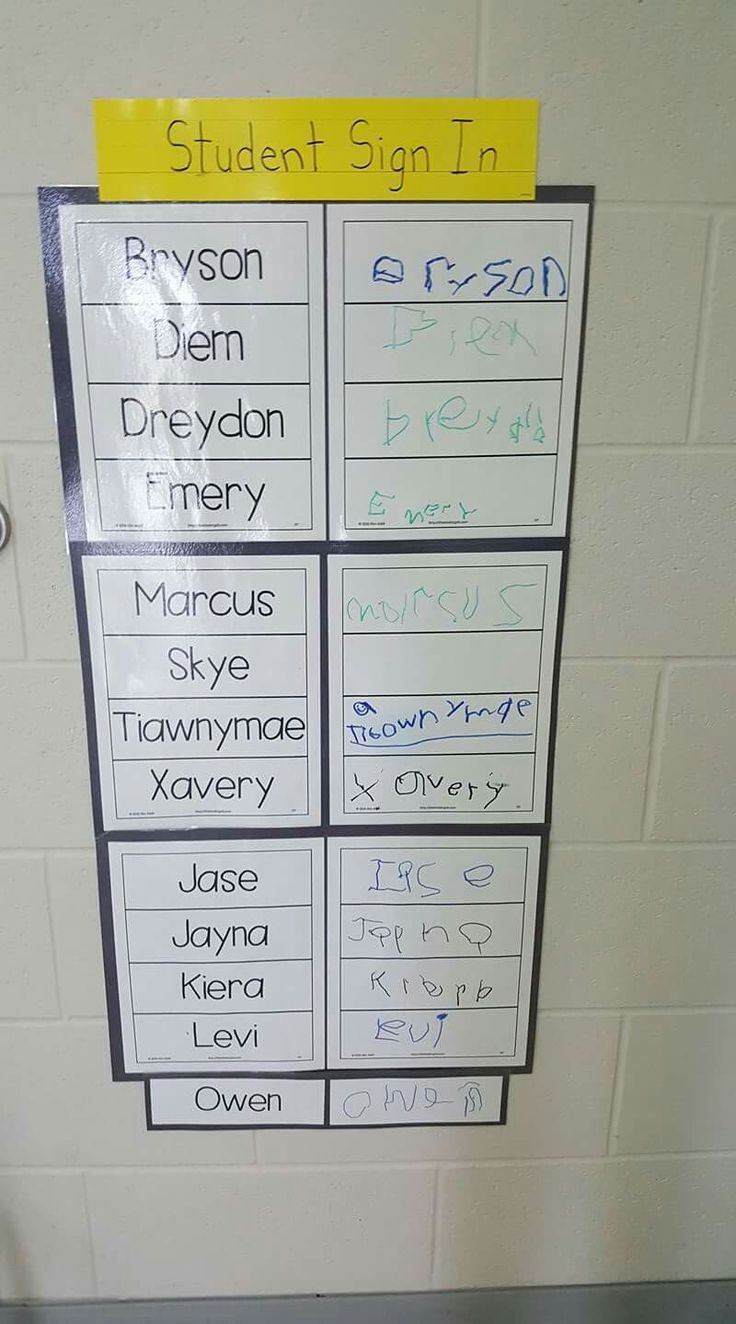 Student Sign In
Bryson Bryson
Diem Diem
Dreydon
Emery Emery
Marcus marcus
Skye
Tiawnymae
Xavery Xavery
Jase Jase
Jayna
Kiera
Levi Levi
Owen owen